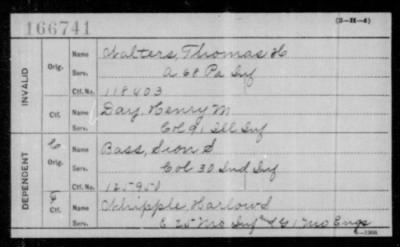 166741
(3-H-4)
INVALID
Orig.
Name Walters, Thomas H
Serv. A 68 Pa Inf
Ctf. No. 118403
Ctf.
Name Day, Henry M
Serv. Col 91 Ill Inf
DEPENDENT
Orig.
Name Bass, Sion S
Serv. Col 30 Ind Inf
Ctf. No. 125950
Ctf.
Name Whipple, Harlow S
Serv. E 25 Mo Inf & C 1 Mo Engs